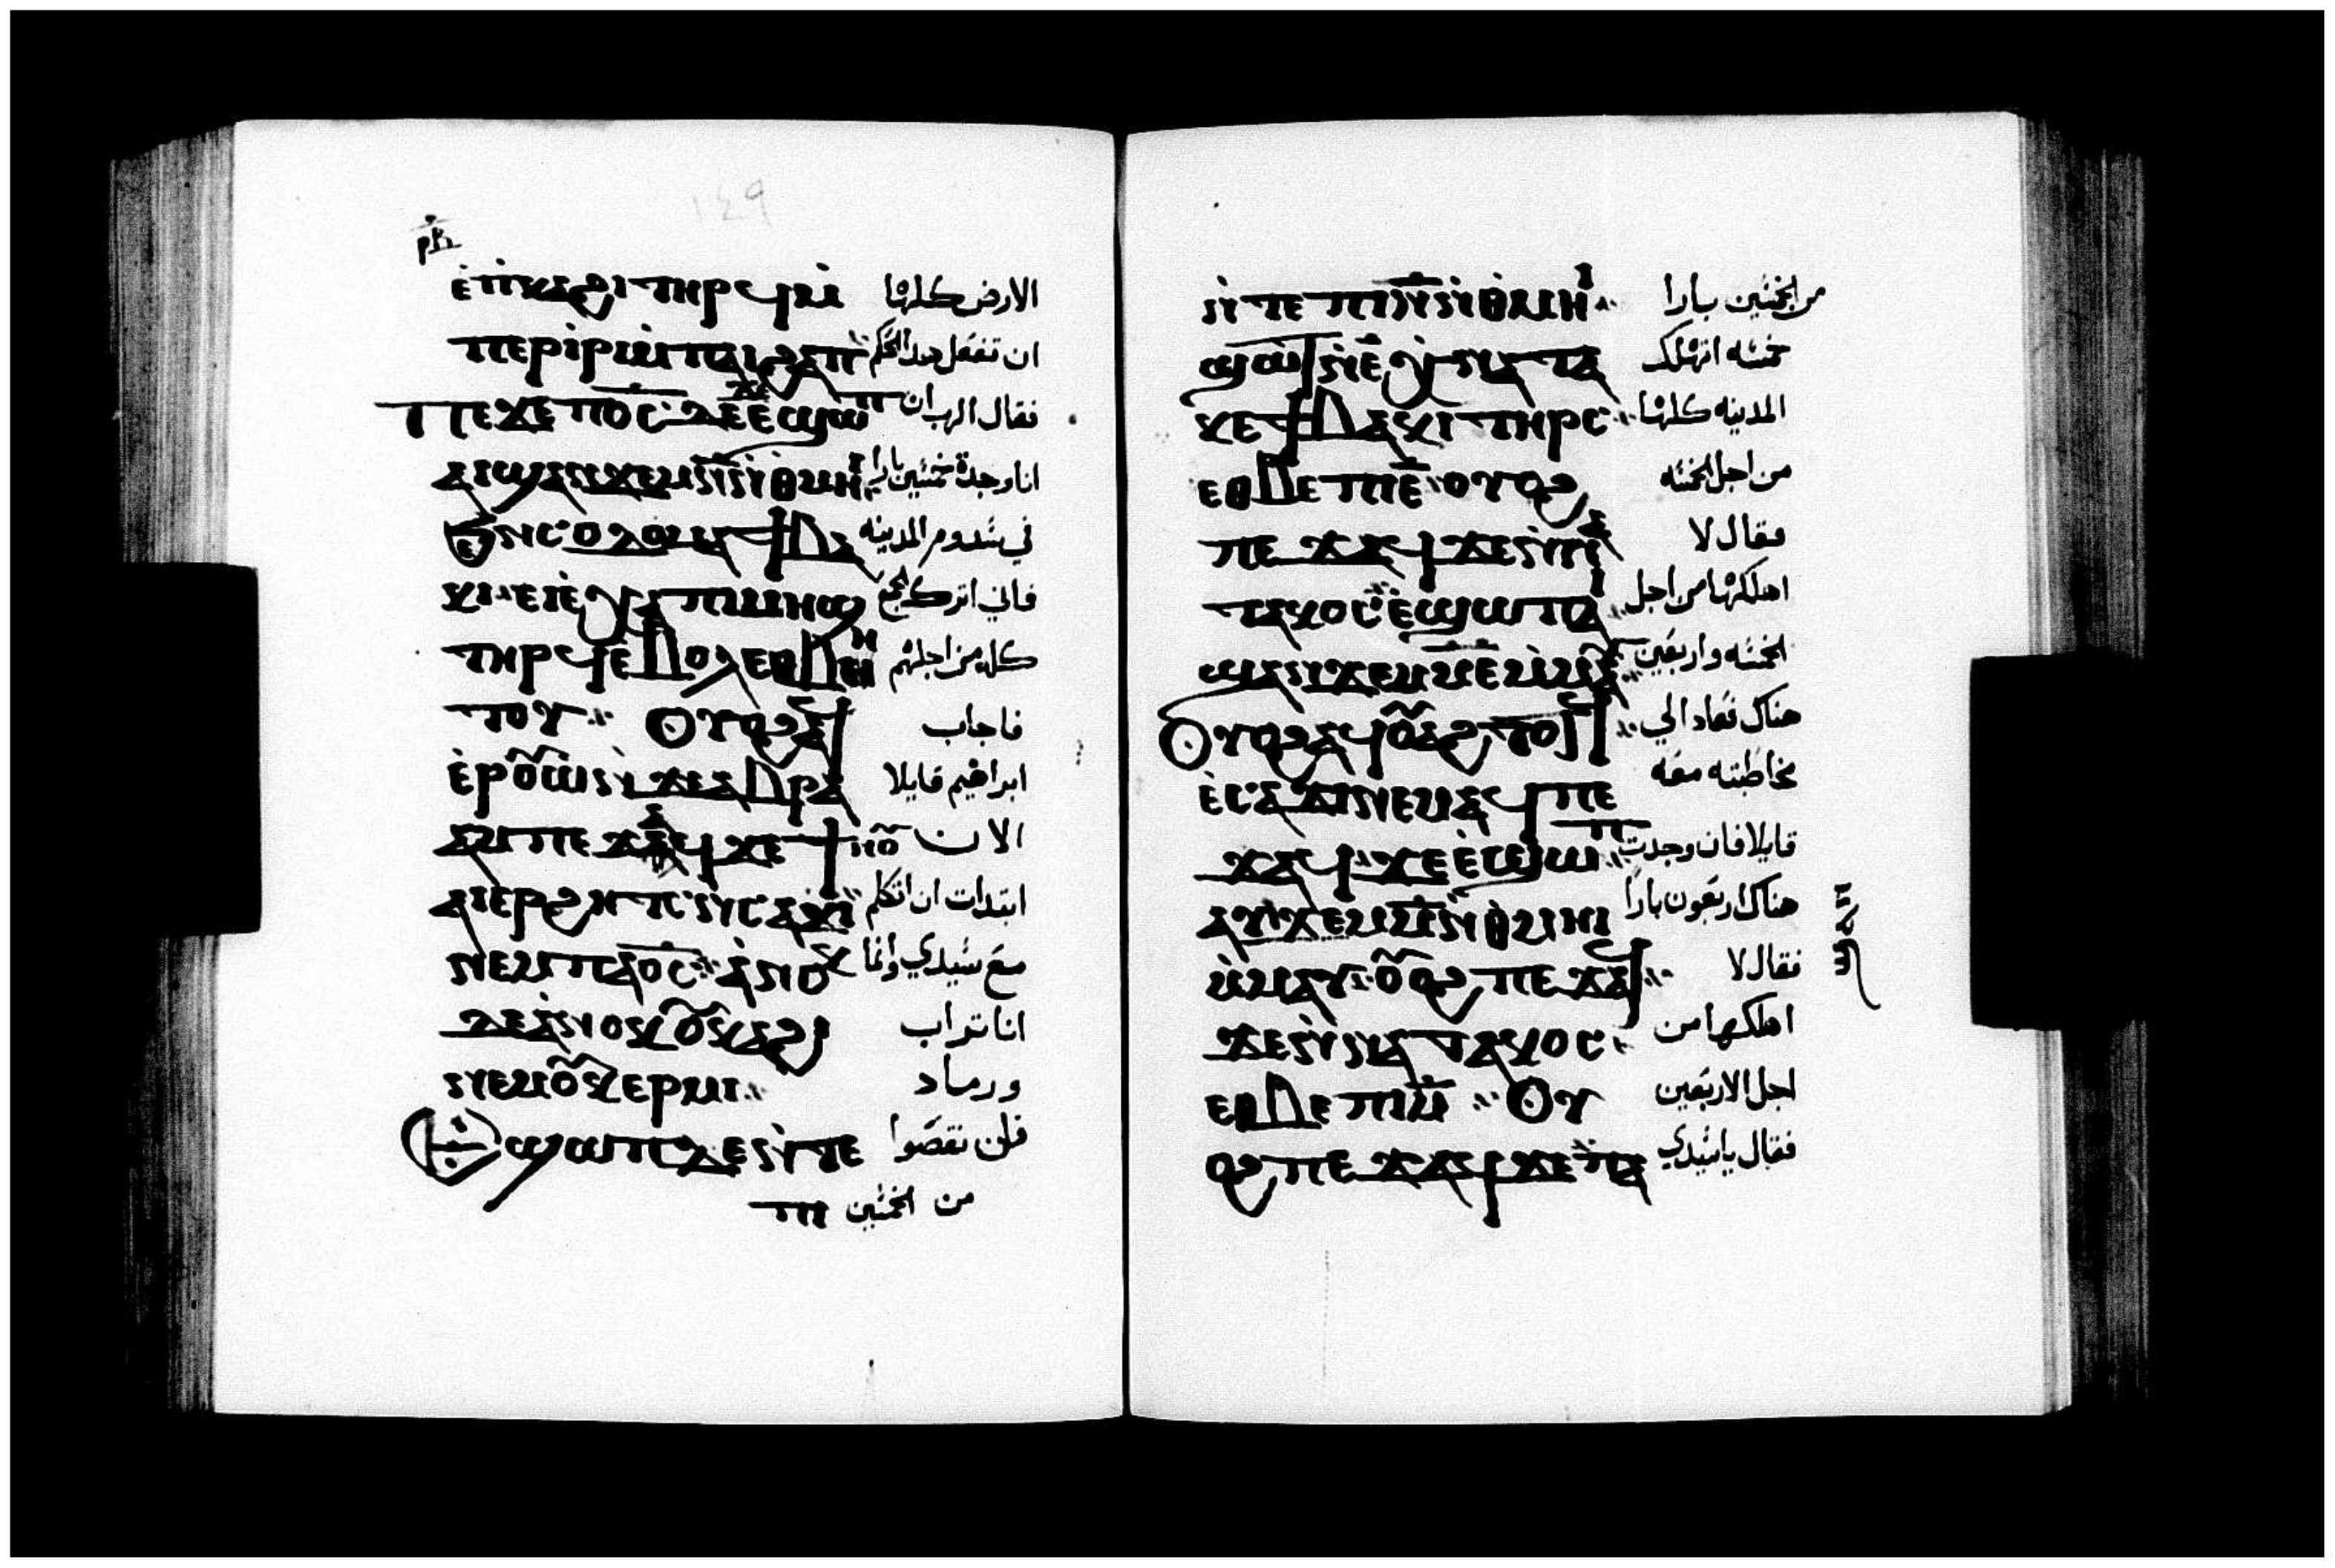 ١٤٩
ⲣⲕ
ⲉⲡⲕⲁϩⲓ ⲧⲏⲣϥ ⲙ الارض كلها
ⲡⲉⲣⲓⲣⲓ ⲙⲡⲁⲓϩⲁⲡ ان تفعل هدا الحكم
ⲡⲉϫⲉ ⲡⲟⲥ ⲇⲉ ϫⲉ ⲉϣⲱⲡ فقال الرب ان
ⲁⲓϣⲁⲛϫⲉⲙ ⲛ ⲛⲑⲙⲏⲓ انا وجدة خمسين بارا
ϧⲉⲛ ⲥⲟⲇⲟⲙⲁ ϯⲃⲁ في سدوم المدينه
ⲕⲓ ⲉⲓⲉⲭⲁ ⲡⲓⲙⲏϣ فاني اترك الجمع
ⲧⲏⲣϥ ⲉⲃⲟⲗ ⲉⲑⲃⲏ كله من اجلهم
ⲧⲟⲩ ⲟⲩⲟϩ ⲁϥ فاجاب
ⲉⲣⲟⲩⲱ ⲛϫⲉ ⲁⲃⲣⲁ ابراهيم قايلا
ⲁⲙ ⲡⲉϫⲁϥ ϫⲉ ϯⲛⲟⲩ الان
ⲁⲓⲉⲣϩⲏⲧⲥ ⲛⲥⲁϫⲓ ابتدات ان اتكلم
ⲛⲉⲙ ⲡⲁⲟⲥ ⲁⲛⲟⲕ مع سيدي وانما
ⲇⲉ ⲁⲛⲟⲕ ⲟⲩⲕⲁϩⲓ انا تراب
ⲛⲉⲙ ⲟⲩⲕⲉⲣⲙⲓ ورماد
ⲉϣⲱⲡ ⲇⲉ ⲛⲧⲉ فان نقصوا
ⲡⲓ من الخمسين
ⲛⲧⲉ ⲡⲓⲛ ⲛⲑⲙⲏⲓ من الخمسين بارا
ϣⲱϫⲡ ⲛⲉ ⲭⲛⲁⲧⲁ خمسه اتهلك
ⲕⲉ ϯⲃⲁⲕⲓ ⲧⲏⲣⲥ المدينه كلها
ⲉⲑⲃⲉ ⲡⲓⲉ ⲟⲩⲟϩ من اجل الخمسه
ⲡⲉϫⲁϥ ϫⲉ ⲛⲛⲁ فقال لا
ⲧⲁⲕⲟⲥ ⲉϣⲱⲡ ⲁⲓ اهلكها من اجل
ϣⲁⲛϫⲉⲙ ⲙⲉ ⲙⲙⲁⲩ الخمسه واربعين
ⲟⲩⲟϩ ⲁϥⲟⲩⲁϩⲧⲟⲧϥ هناك فعاد الي
ⲉⲥⲁϫⲓ ⲛⲉⲙⲁϥ ⲡⲉ مخاطبته معه
ϫⲁϥ ϫⲉ ⲉϣⲱⲡ قايلا فان وجدت
ⲁⲩϫⲉⲙ ⲙ ⲛⲑⲙⲏⲓ هناك اربعون بارا
ⲙⲙⲁⲩ ⲟⲩⲟϩ ⲡⲉϫⲁϥ فقال لا
ϫⲉ ⲛⲛⲁⲧⲁⲕⲟⲥ اهلكها من
ⲉⲑⲃⲉ ⲡⲓⲙ ⲟⲩ اجل الاربعين
ⲟϩ ⲡⲉϫⲁϥ ϫⲉ ⲡⲁ فقال يا سيدي